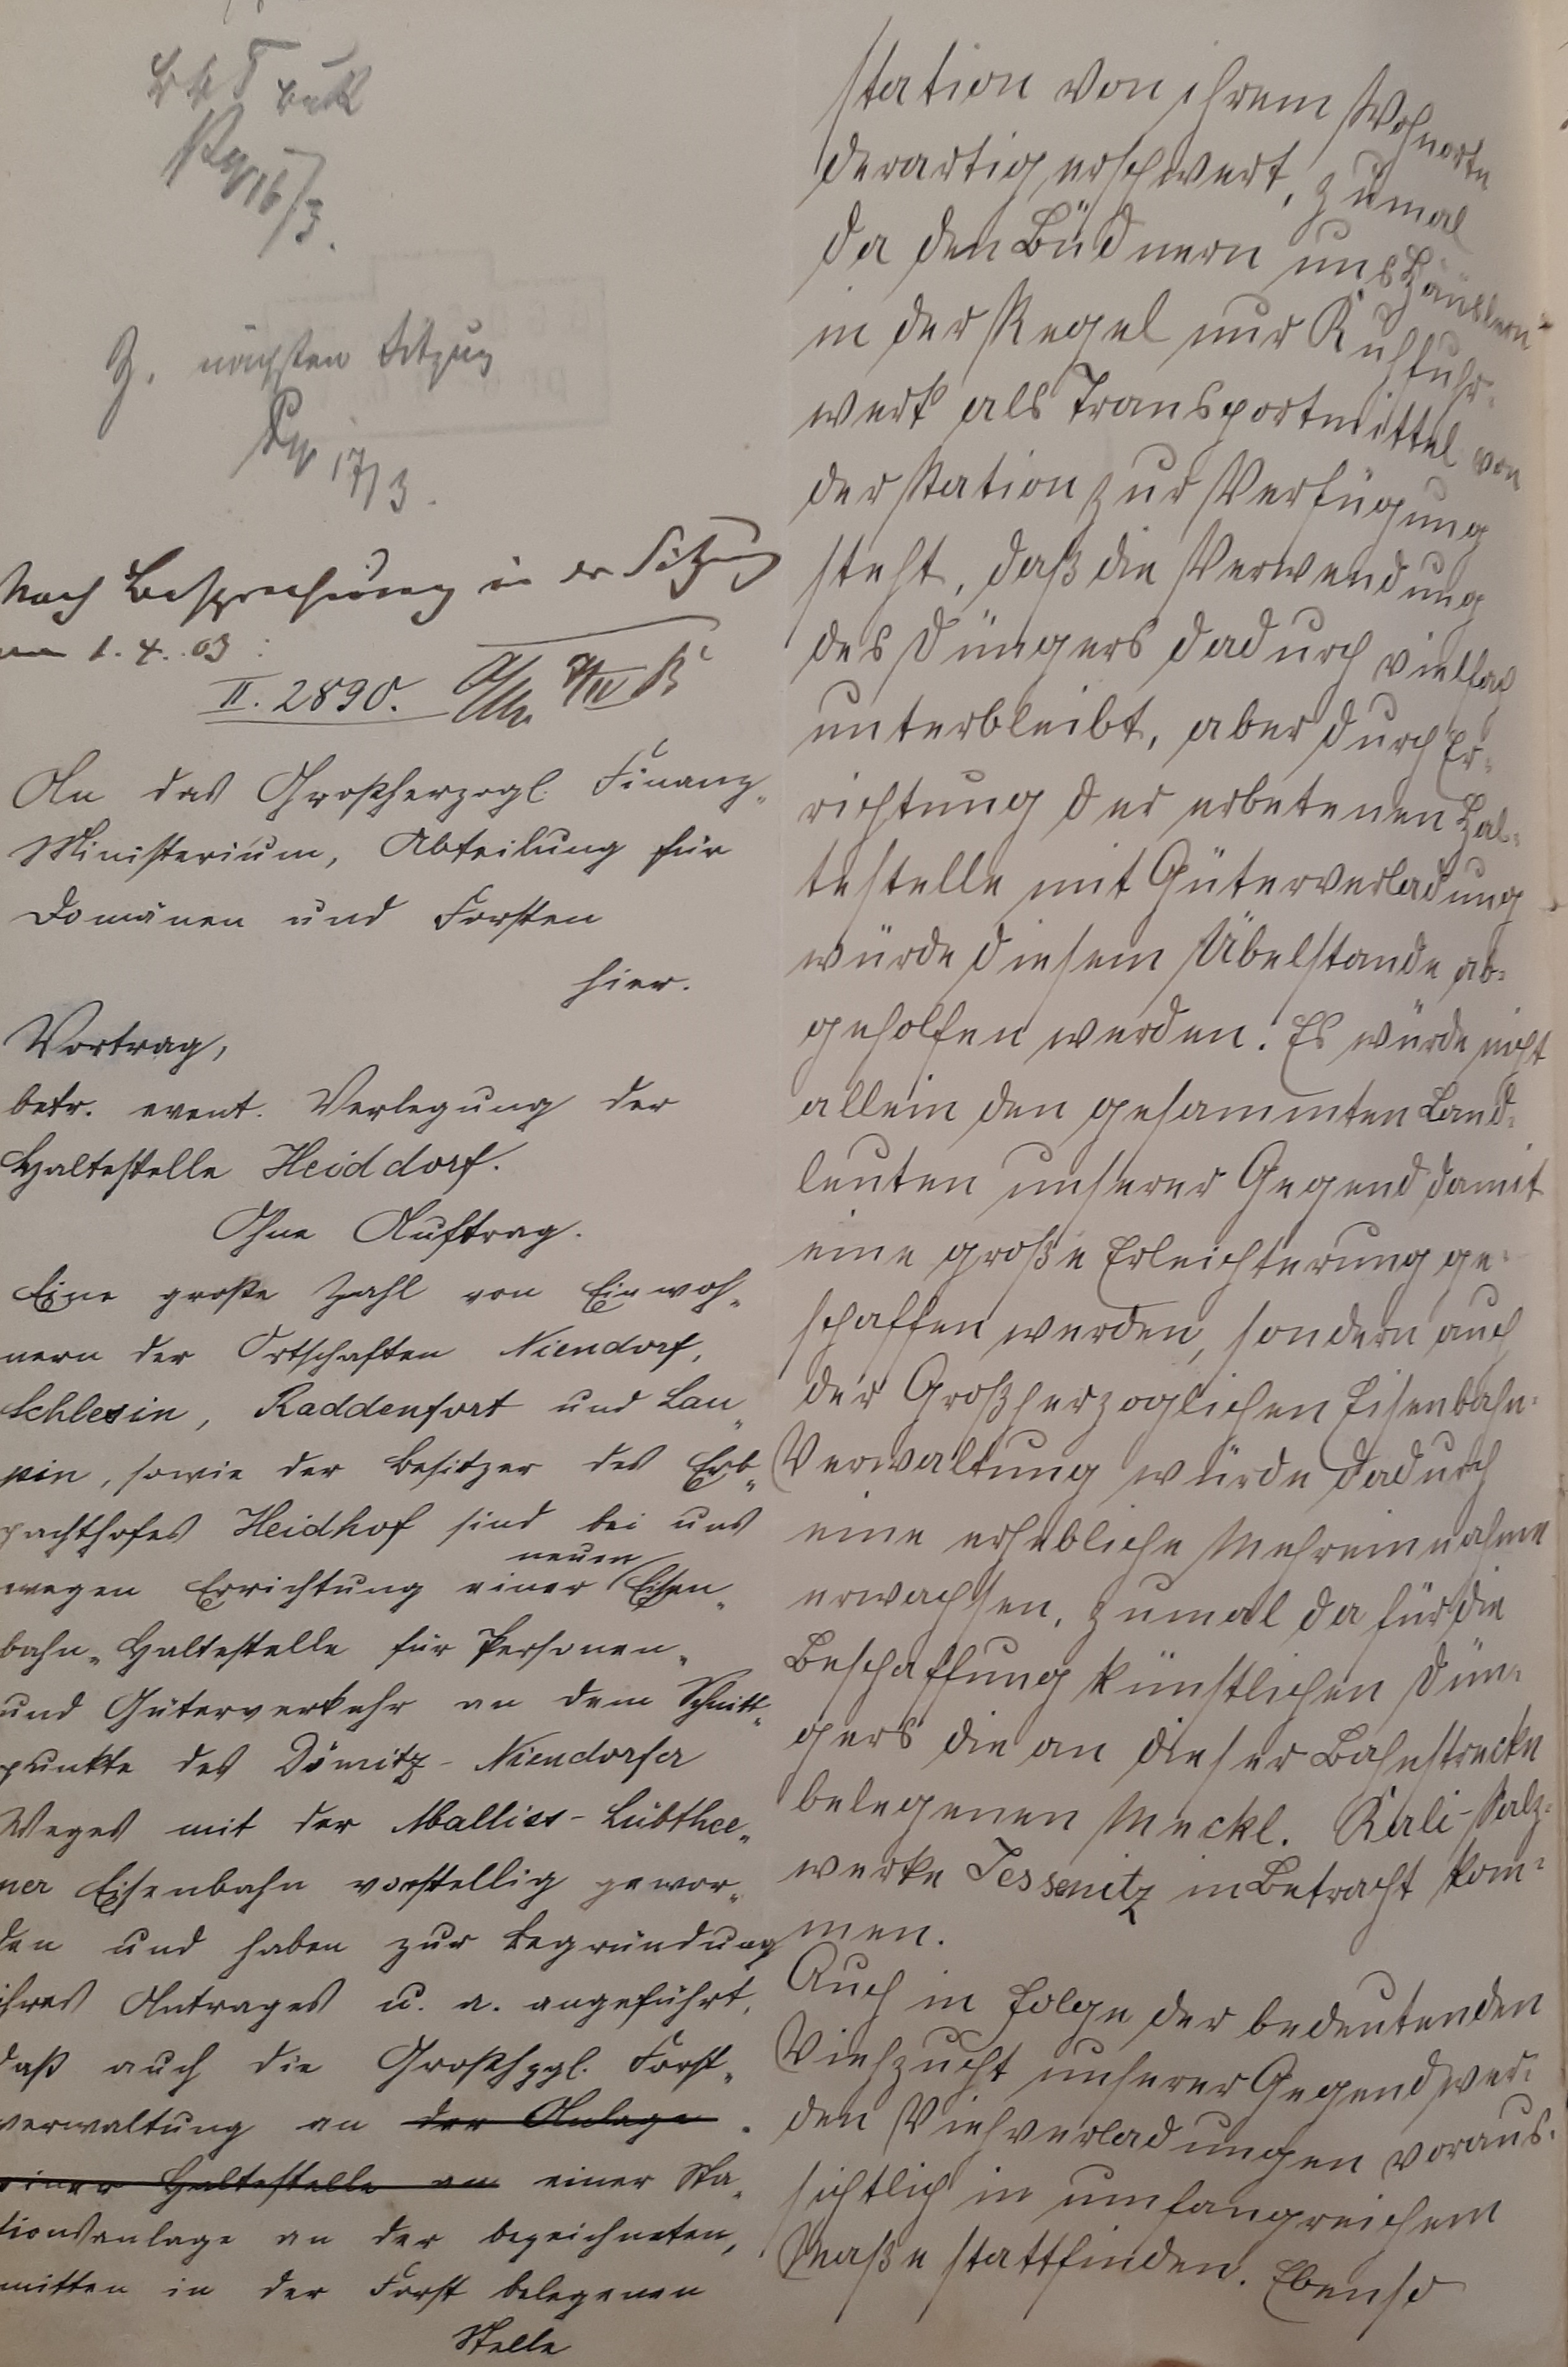 16/3.
Z. nächsten Sitzung
17/3.
Nach Besprechung in der Sitzung
am 1.4.03:
II. 2890.
An das Großherzogl. Finanz-
Ministerium, Abteilung für
Domänen und Forsten
hier.
Vortrag,
betr. event. Verlegung der
Haltestelle Heiddorf.
Ohne Auftrag.
Eine große Zahl von Einwoh-
nern der Ortschaften Niendorf,
Schlesin, Raddenfort und Lau-
pin, sowie der Besitzer des Erb-
pachthofes Heidhof sind bei uns
wegen Errichtung einer neuen Eisen-
bahn-Haltestelle für Personen-
und Güterverkehr an dem Schnitt-
punkte des Dömitz-Niendorfer
Weges mit der Malliss-Lübthee-
ner Eisenbahn vorstellig gewor-
den und haben zur Begründung
ihres Antrages u. a. angeführt,
daß auch die Großhzgl. Forst-
verwaltung an der Anlage
einer Haltestelle an einer Sta-
tionsanlage an der bezeichneten,
mitten in der Forst belegenen
Stelle
station von ihrem Wohnorte
derartig erschwert, zumal
da den Büdnern und Häuslern
in der Regel nur Kuhfuhr-
werk als Transportmittel von
der Station zur Verfügung
steht, daß die Verwendung
des Düngers dadurch vielfach
unterbleibt, aber durch Er-
richtung der erbetenen Hal-
testelle mit Güterverladung
würde diesem Übelstande ab-
geholfen werden. Es würde nicht
allein den gesammten Land-
leuten unserer Gegend damit
eine große Erleichterung ge-
schaffen werden, sondern auch
der Großherzoglichen Eisenbahn-
Verwaltung würde dadurch
eine erhebliche Mehreinnahme
erwachsen, zumal da für die
Beschaffung künstlichen Dün-
gers die an dieser Bahnstrecke
belegenen Meckl. Kali-Salz-
werke Jessenitz in Betracht kom-
men.
Auch in Folge der bedeutenden
Viehzucht unserer Gegend wer-
den Viehverladungen voraus-
sichtlich in umfangreichem
Maße stattfinden. Ebenso